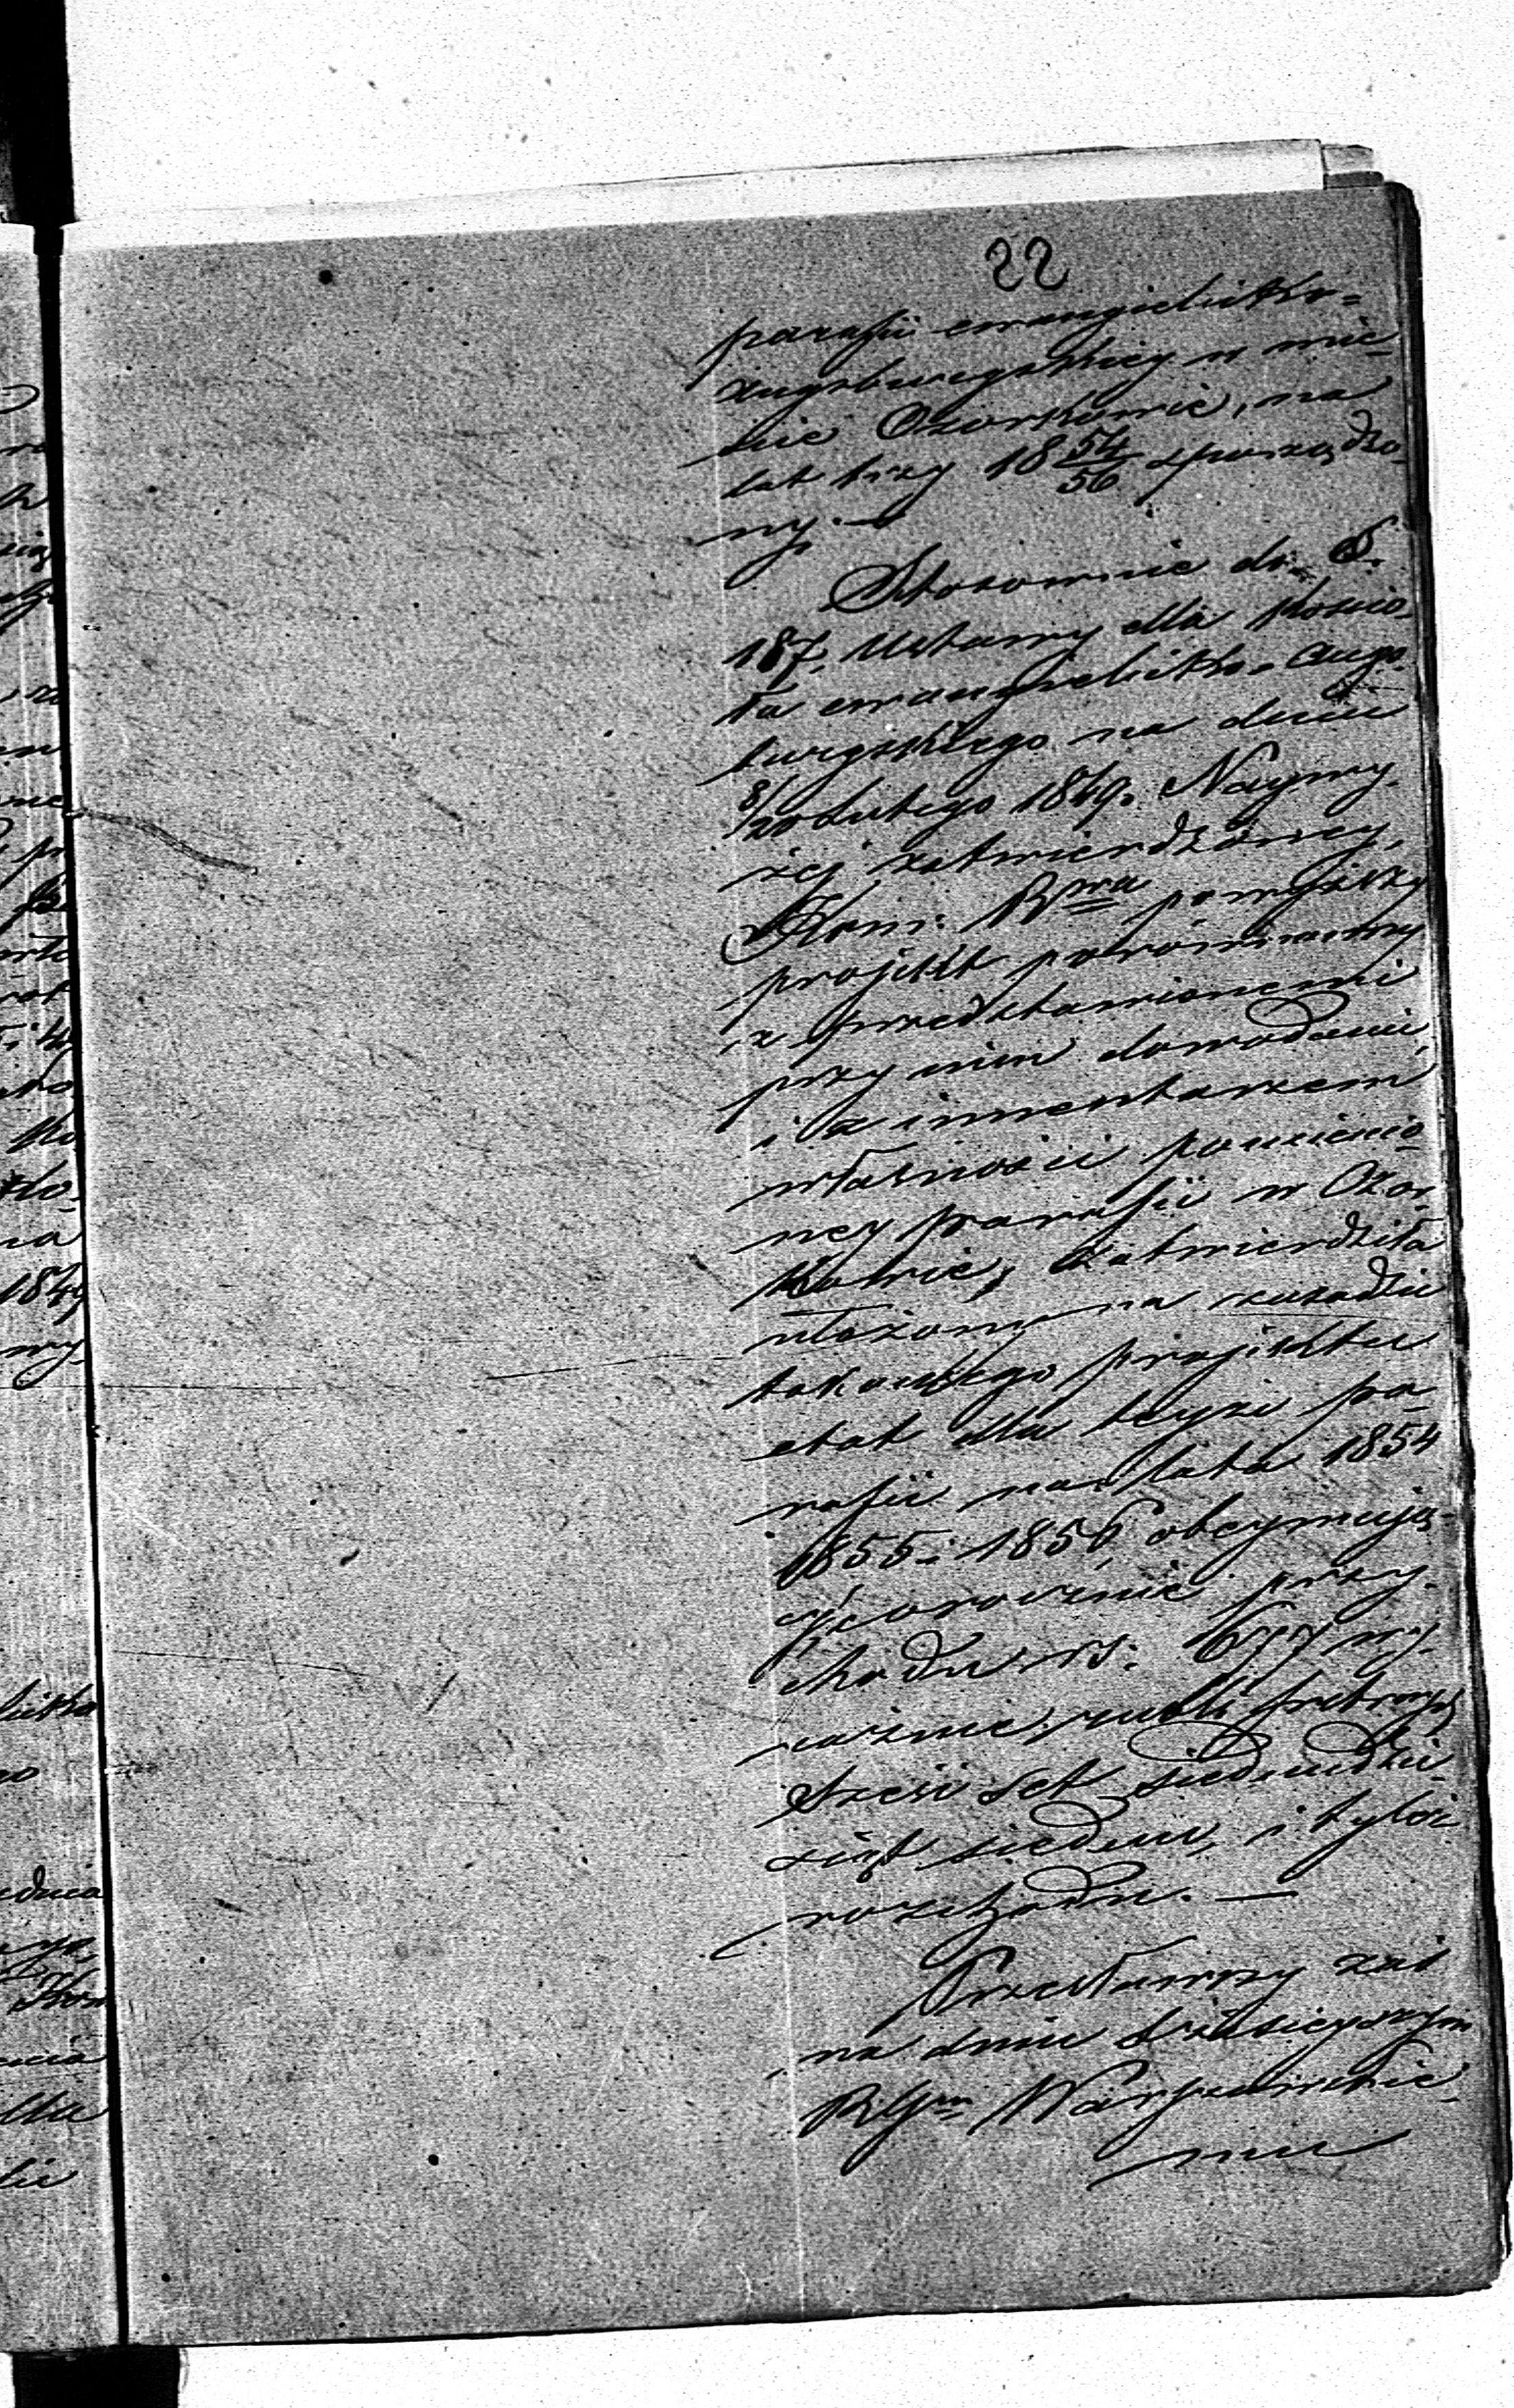 22
parafii ewangielicko=
augsburgskiey w mie-
ście Ozorkowie, na
lat trzy 18 54/56 sporządzo-
ny. —
Stosownie do §.
187. Ustawy dla Kościo-
ła ewangielicko-augs-
burgskiego na dniu
8/20 Lutego 1849. Naywy-
żej zatwierdzoney,
Kom: Rwa powyższy
projekt porównawszy
z przedstawionemi
przy nim dowodami,
i z inwentarzem
własności pomienio-
ney parafii w Ozor-
kowie, zatwierdziła
ułożony na zasadzie
takowego projektu
etat dla teyże pa-
rafii na lata 1854
1855 i 1856 obeymują-
cy corocznie przy-
chodu rs: 677 wy-
raźnie rubli srebrnych
sześć set siedmdzie-
siąt siedem, i tyleż
rozchodu. —
Przesławszy zaś
na dniu dzisieyszym
RGm Warszawskie-
mu